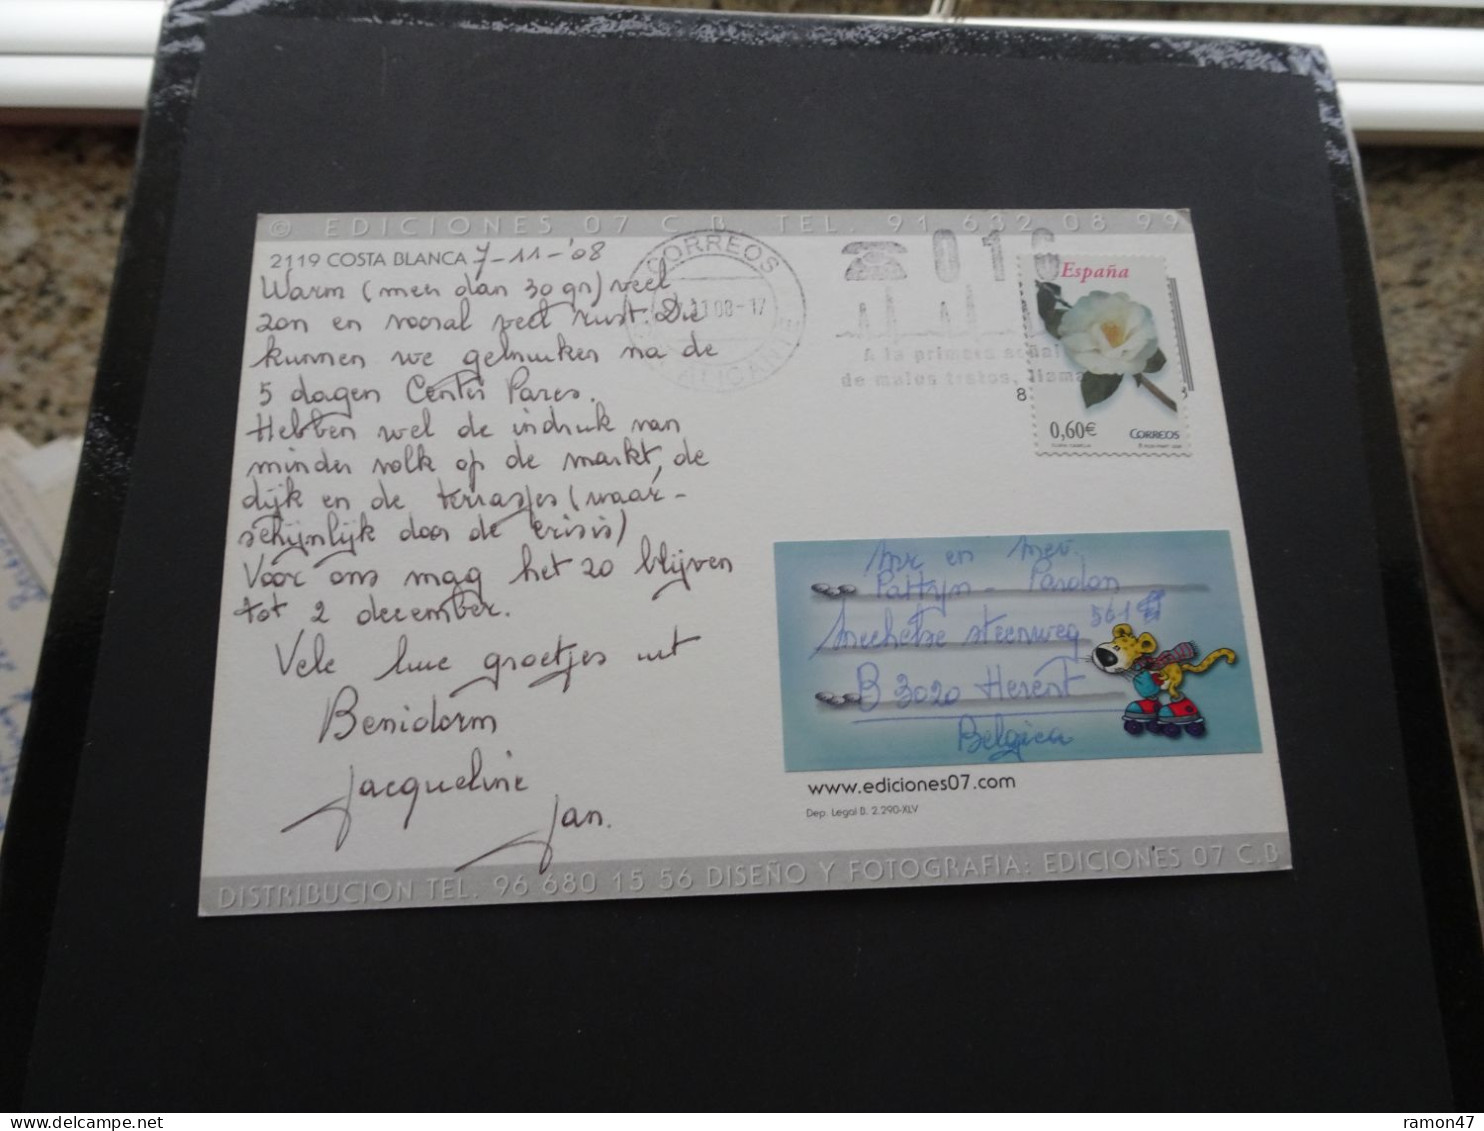 © EDICIONES 07 C.B. TEL. 91 632 08 99
2119 COSTA BLANCA 7-11-'08
Warm (meer dan 30 gr) veel
zon en vooral veel rust. Die
kunnen we gebruiken na de
5 dagen Center Parcs.
Hebben wel de indruk van
minder volk op de markt, de
dijk en de terrasjes (waar-
schijnlijk door de crisis)
Voor ons mag het zo blijven
tot 2 december.
Vele lieve groetjes uit
Benidorm
Jacqueline
Jan.
CORREOS
11 08-17
ALICANTE
016
A la primera señal
de malos tratos, llama
España
8 3
0,60€ CORREOS
Mr en Mev.
Pattyn - Pardon
Mechelse steenweg 561
B 3020 Herent
Belgica
www.ediciones07.com
Dep. Legal B. 2.290-XLV
DISTRIBUCION TEL. 96 680 15 56 DISEÑO Y FOTOGRAFIA: EDICIONES 07 C.B
ramon47